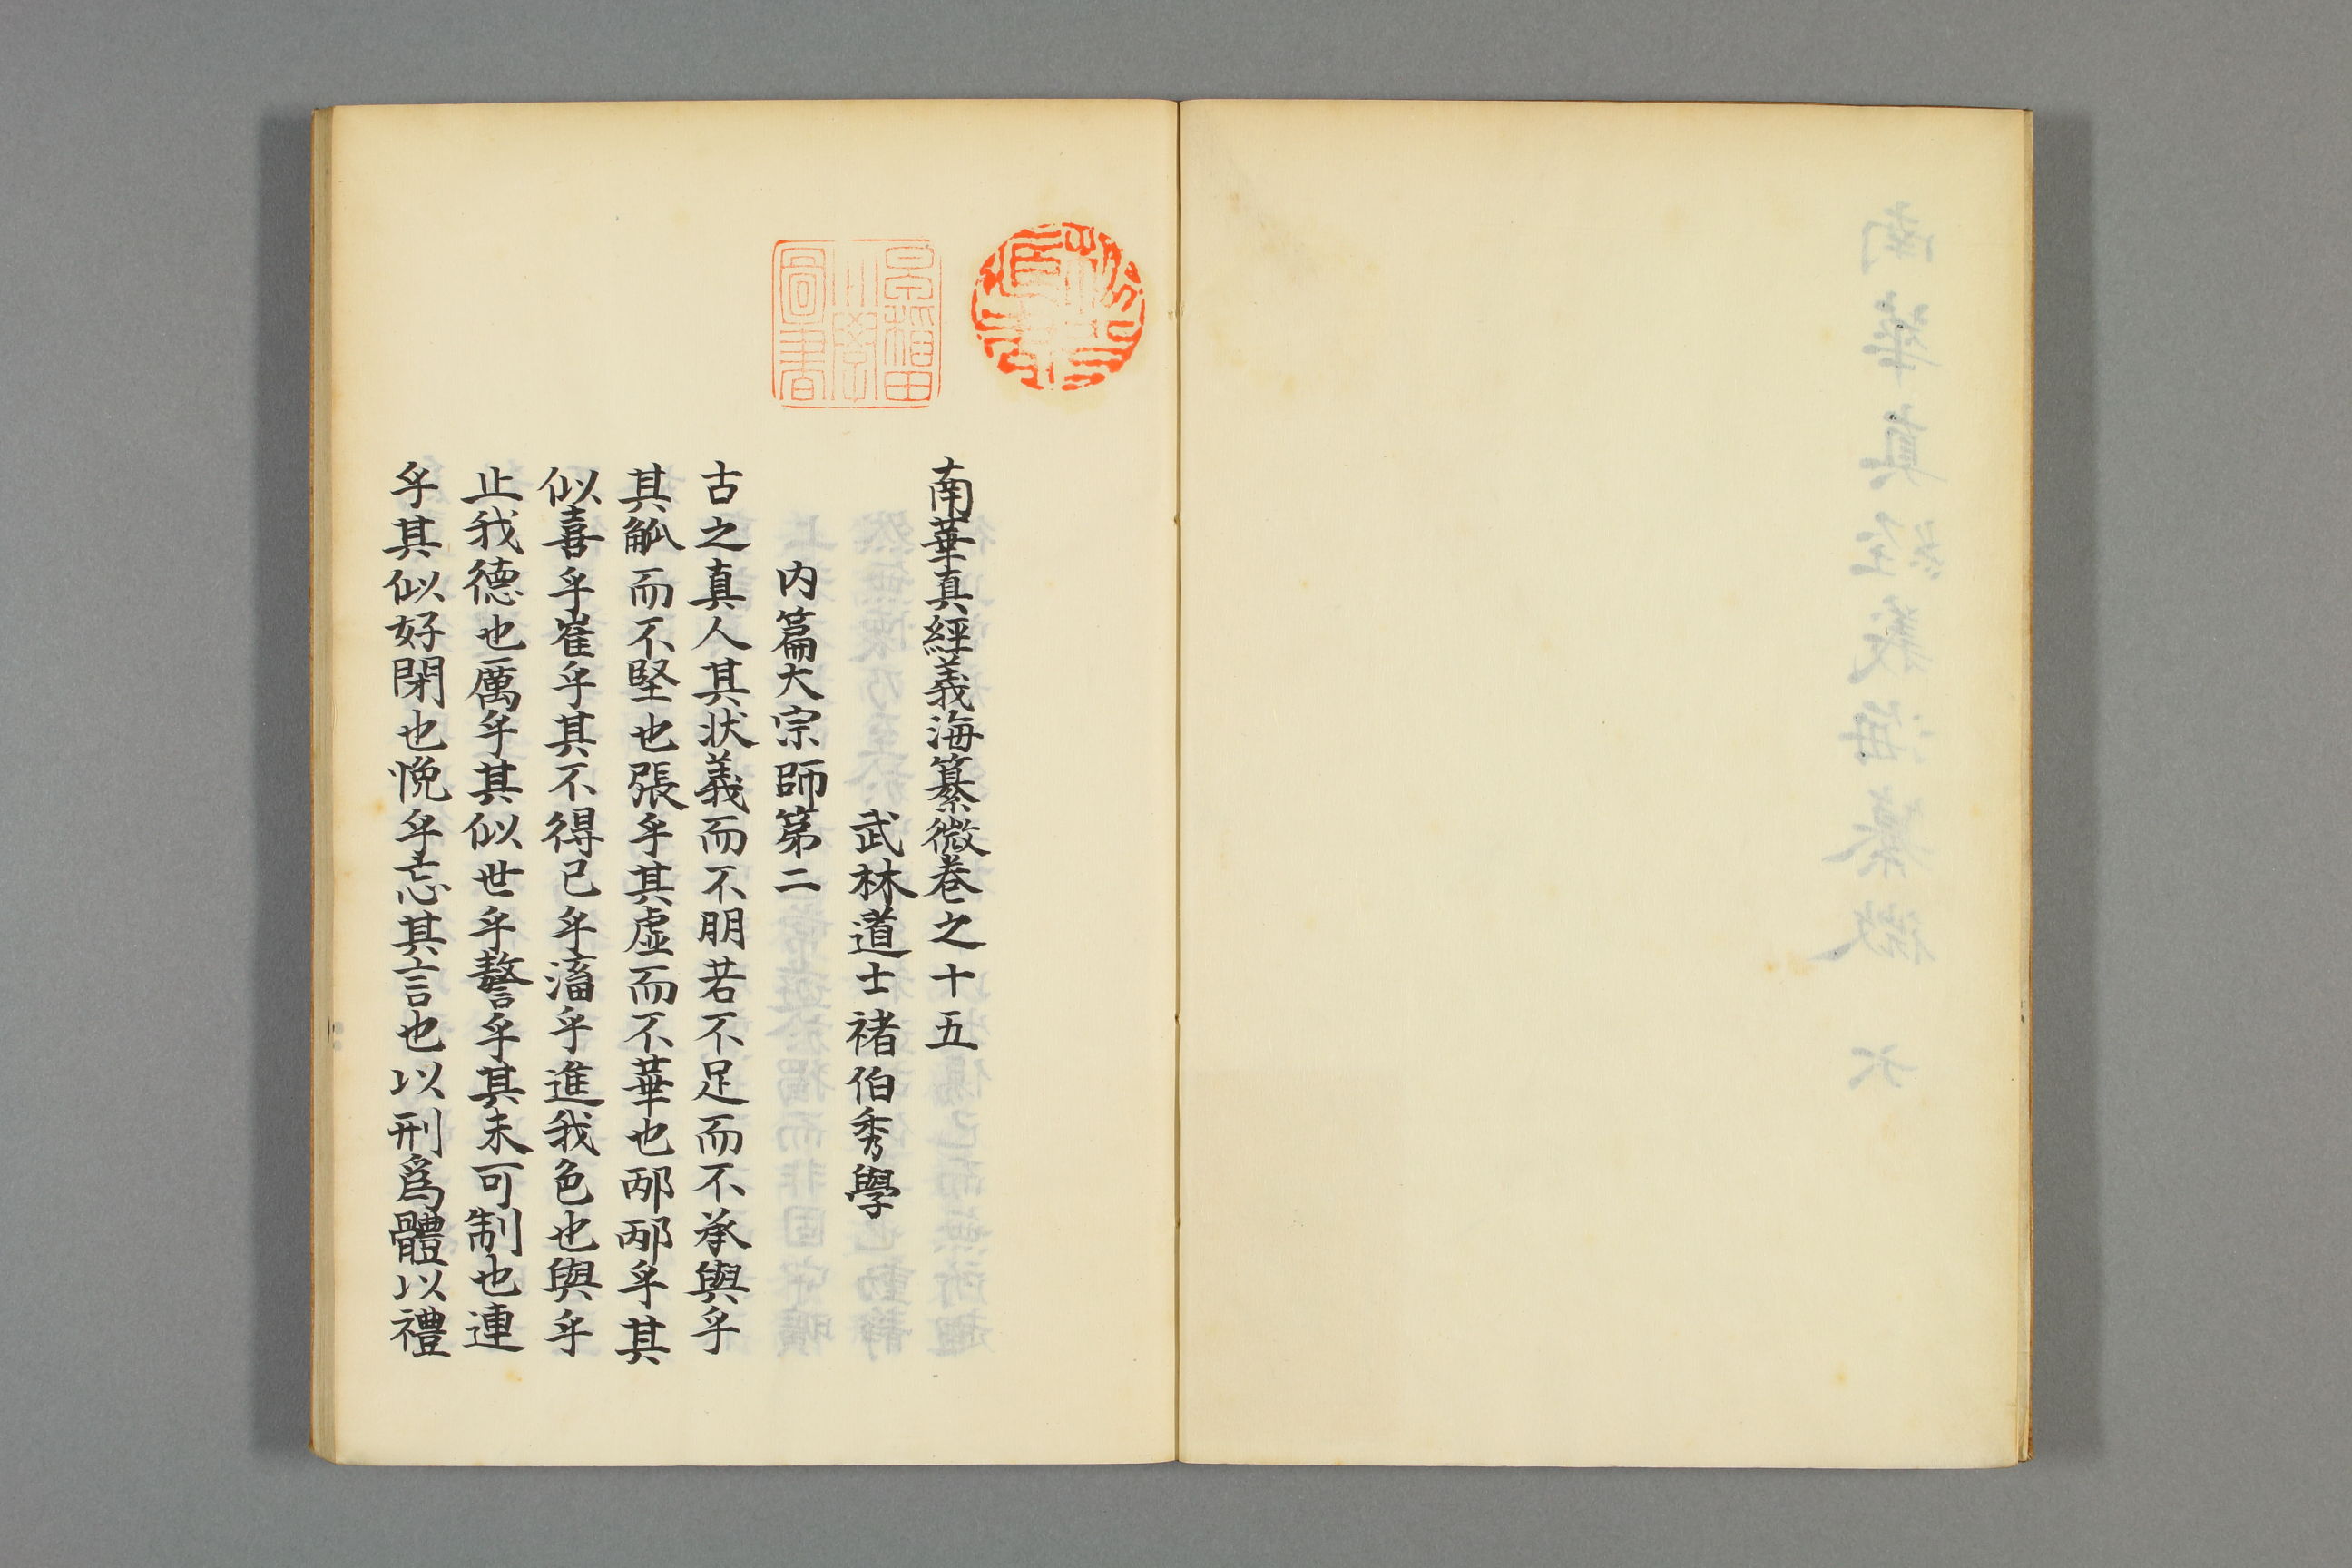 南華真經義海纂微卷之十五
武林道士褚伯秀學
内篇大宗師第二
古之真人其状義而不朋若不足而不承與乎
其觚而不堅也張乎其虚而不華也邴邴乎其
似喜乎崔乎其不得已乎滀乎進我色也與乎
止我德也厲乎其似世乎謷乎其未可制也連
乎其似好閉也悗乎忘其言也以刑爲體以禮
早稲田大學圖書